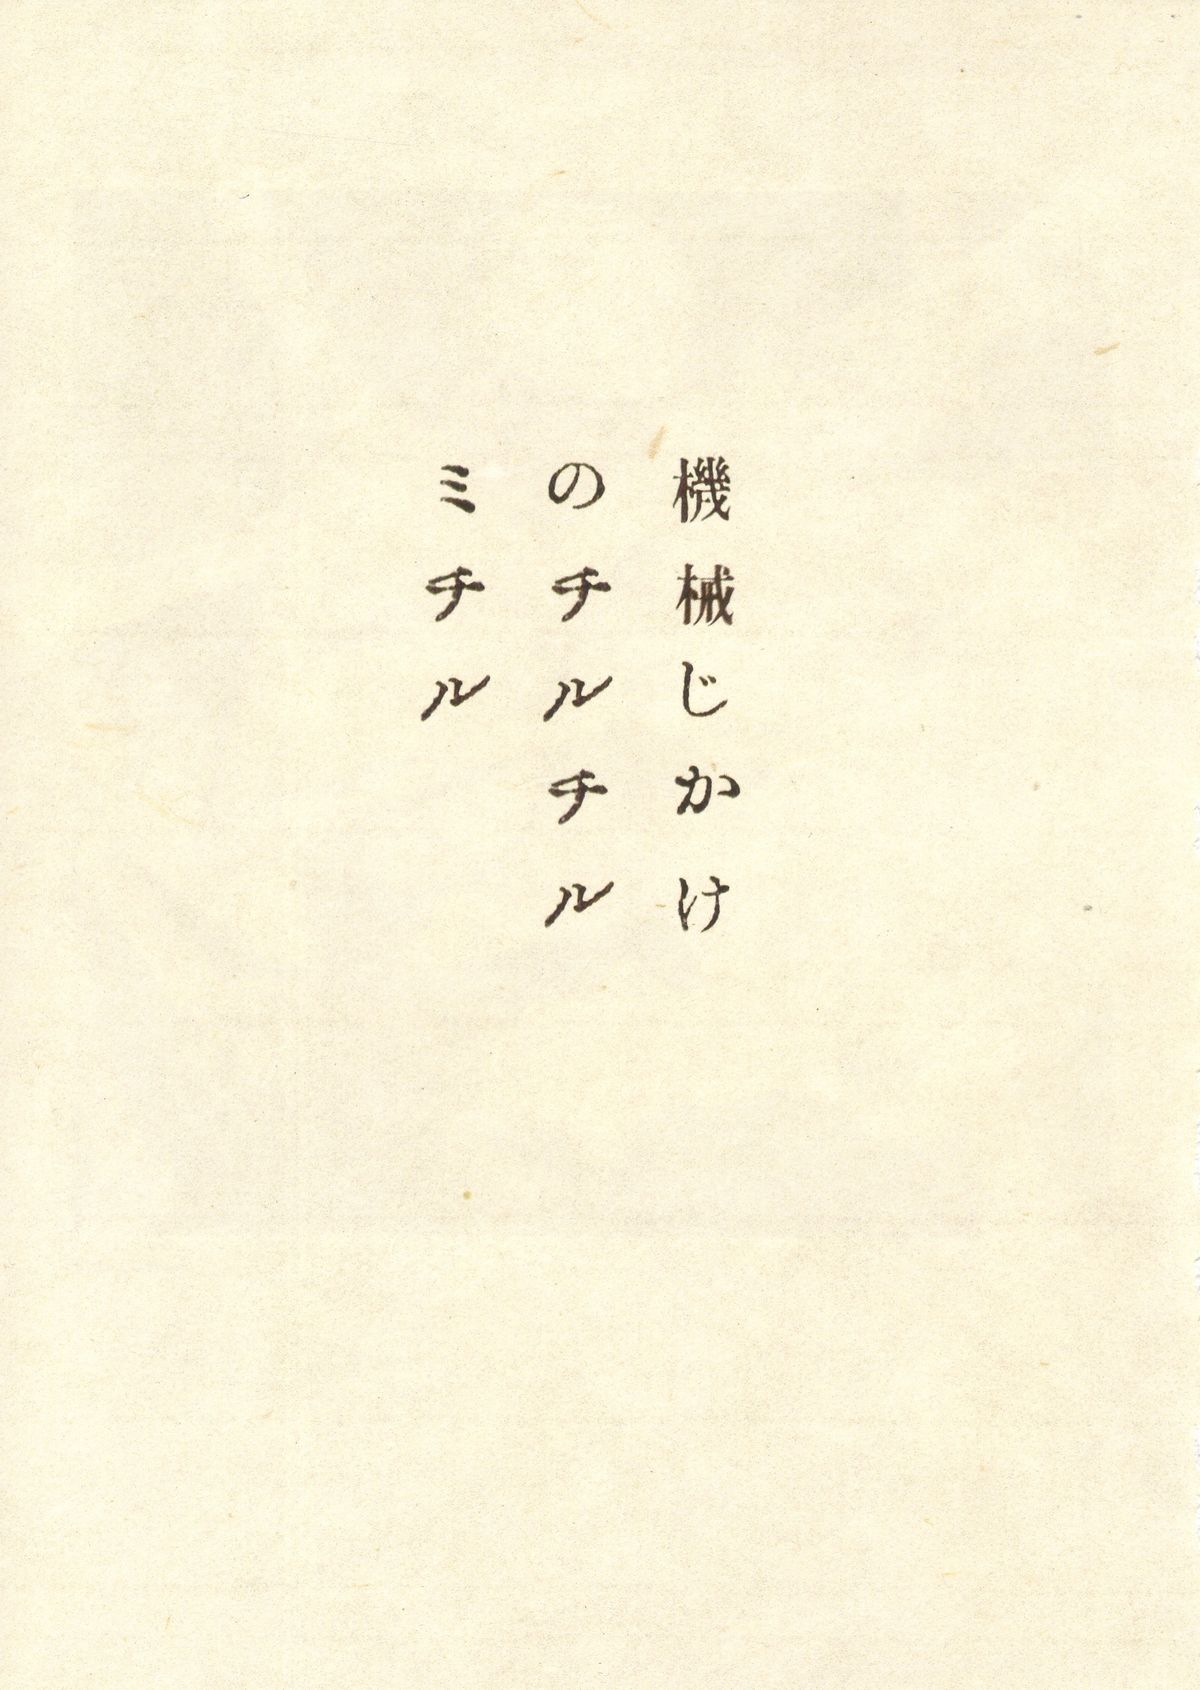 機械じかけ
のチルチル
ミチル